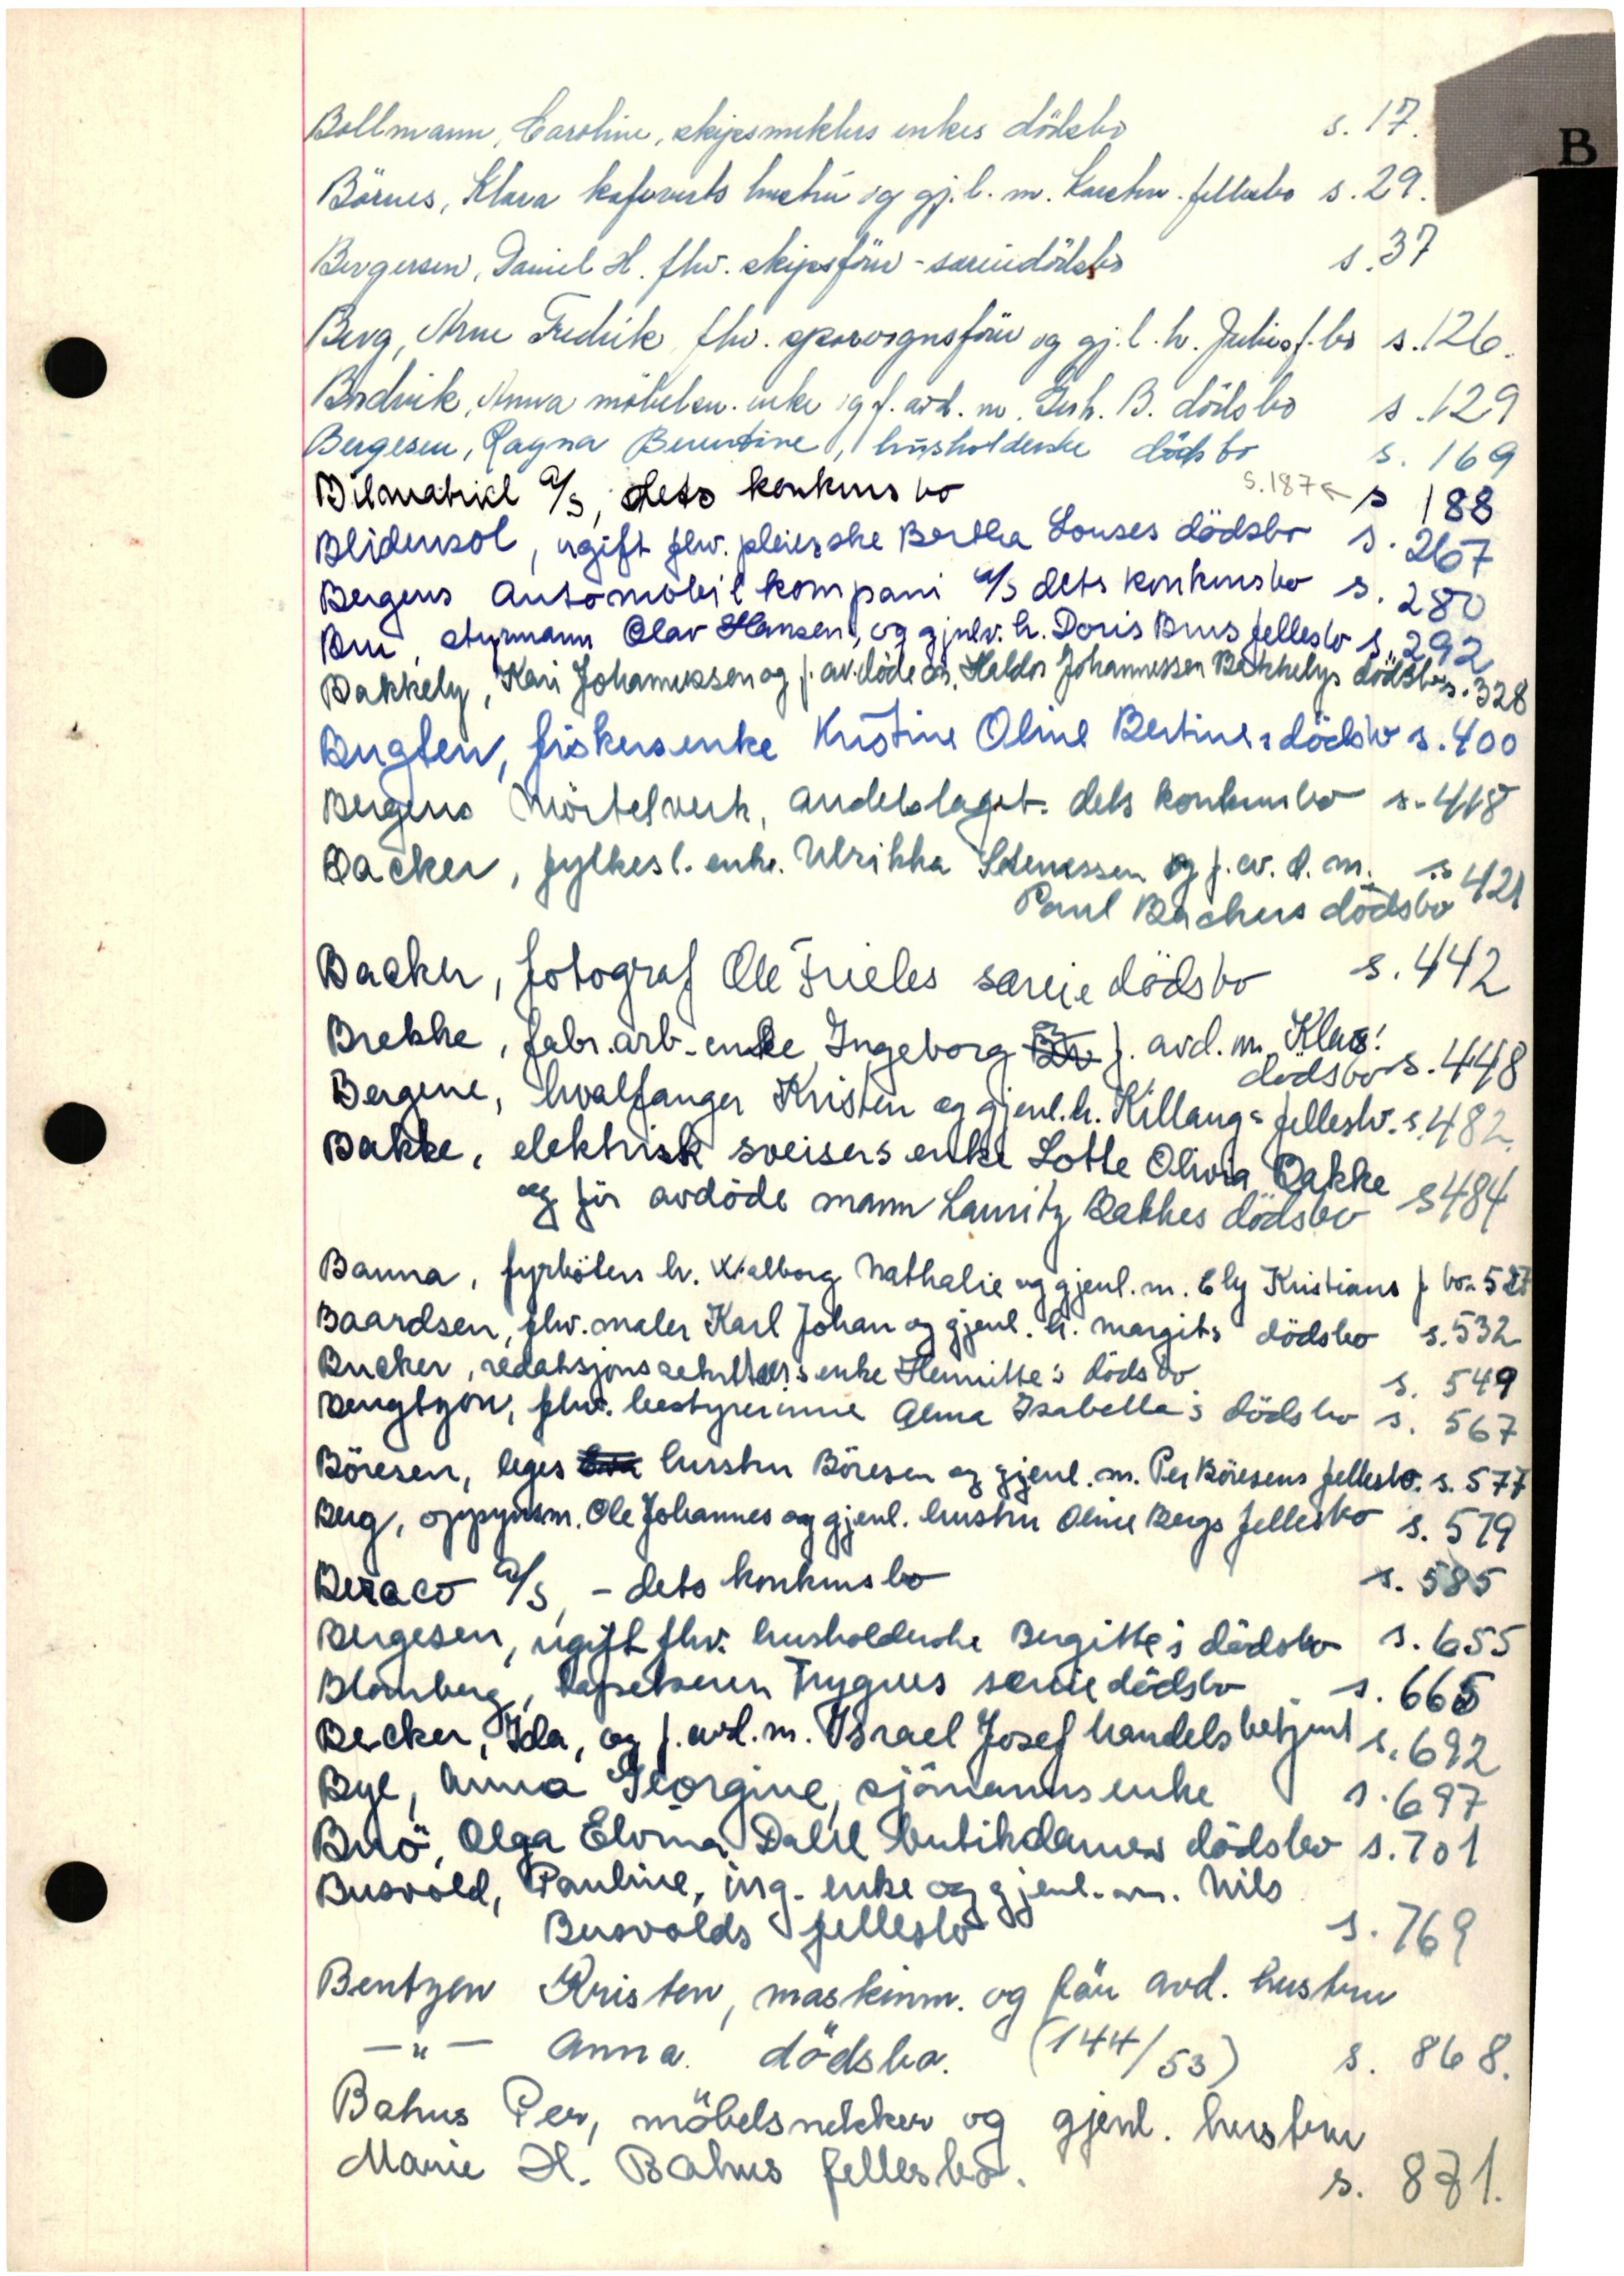 B
Bollmann, Caroline, skipsmeklers enkes dödsbo s. 17.
Börnes, Klara kafeverts hustru og gj.l. m. fellesbo s. 29.
Bergersen, Daniel H. fhv. skipsförer - særeiedödsbo s. 37
Berg, Arne Fredrik fhv. sporvognsförer og gj.l. h. f.bo s. 126.
Anna enke og f. avd. m. Joh. B. dödsbo s. 129
Bergesen, Ragna Berentine, husholderske dödsbo s. 169
Bilmatriel A/S, dets konkursbo s. 187 s 188
Blidensol, ugift fhv. pleierske Bertha Louises dödsbo s. 267
Bergens Automobilkompani A/S dets konkursbo s. 280
Bru, styrmann Olav Hansen, og gjenlev. h. Doris Brus fellesbo s. 292
Bakkely, Kari Johannessen og f. avdöde m. Haldor Johannessen Bakkelys dödsbo s. 328
Bugten, fiskersenke Kristine Oline Bertines dödsbo s. 400
Bergens Mörtelverk, andelslaget dets konkursbo s. 418
Backer, fylkesl. enke Ulrikka og f. av. d. m. s 421
Paul Backers dödsbo
Backer, fotograf Ole Frieles særeie dödsbo s. 442
Brekke, fabr.arb.enke Ingeborg f. avd. m. Klas!
dödsbo s. 448
Bergene, hvalfanger Kristen og gjenl. h. Killaugs fellesbo. s. 482.
Bakke, elektrisk sveisers enke Lotte Olivia Bakke
og för avdöde mann Lauritz Bakkes dödsbo s 484
Banna, fyrböters h. Valborg Nathalie og gjenl. m. Ely Kristians f bo. 527
Baardsen, fhv. maler Karl Johan og gjenl. h. Margits dödsbo s. 532
Bucker, redaksjonssekretærs enke Henriette's dödsbo s. 549
Bengtzon, fhv. bestyrerinne Alma Isabella's dödsbo s. 567
Böresen, leges hustru Böresen og gjenl. m. Per Böresens fellesbo. s. 577
Berg, oppynsm. Ole Johannes og gjenl. hustru Oline Bergs fellesbo s. 579
Beraco A/S, - dets konkursbo s. 585
Bergesen, ugift fhv. husholderske Bergitte's dödsbo s. 655
Blomberg, tapetserer Trygves særeie dödsbo s. 665
Becker, Ida, og f. avd. m. Israel Josef handelsbetjent s. 692
Bye, Anna Georgine, sjömanns enke s. 697
Bruö, Olga Elvina Dahl butikdames dödsbo s. 701
Busvold, Pauline, ing. enke og gjenl. m. Nils
Busvolds fellesbo s. 769
Bentzen Kristen, maskinm. og för avd. hustru
—"— Anna. dödsbo. (144/53) s. 868.
Bahus Per, möbelsnekker og gjenl. hustru
Marie H. Bahus fellesbo. s. 871.